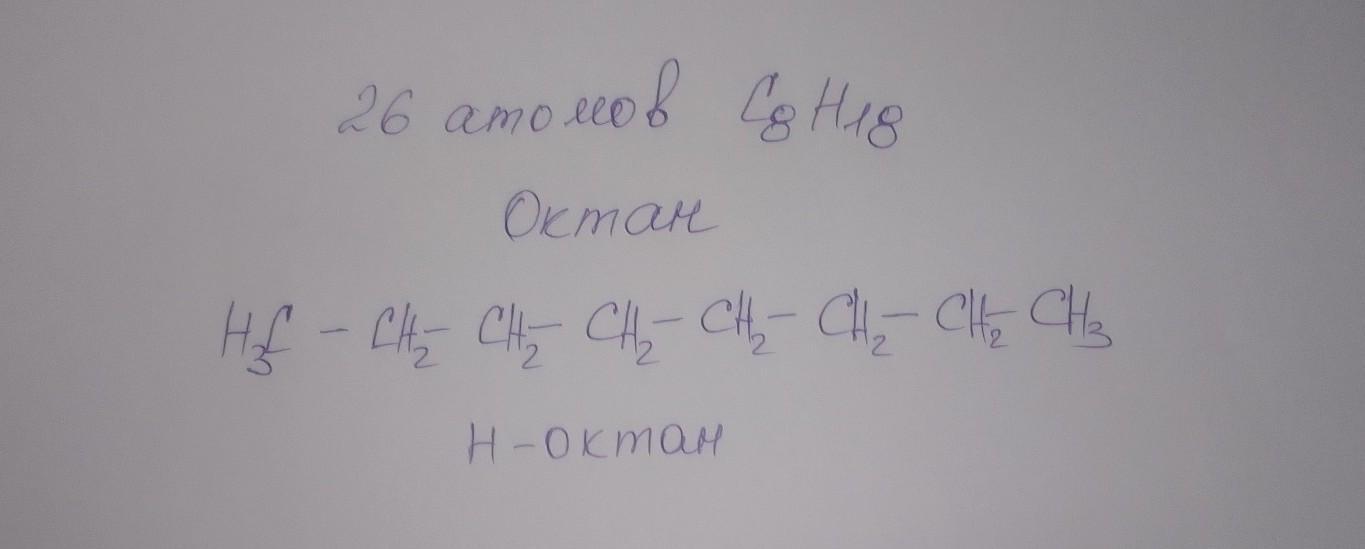 26 атомов C8H18
Октан
H3C - CH2 - CH2 - CH2 - CH2 - CH2 - CH2 - CH3
Н-октан